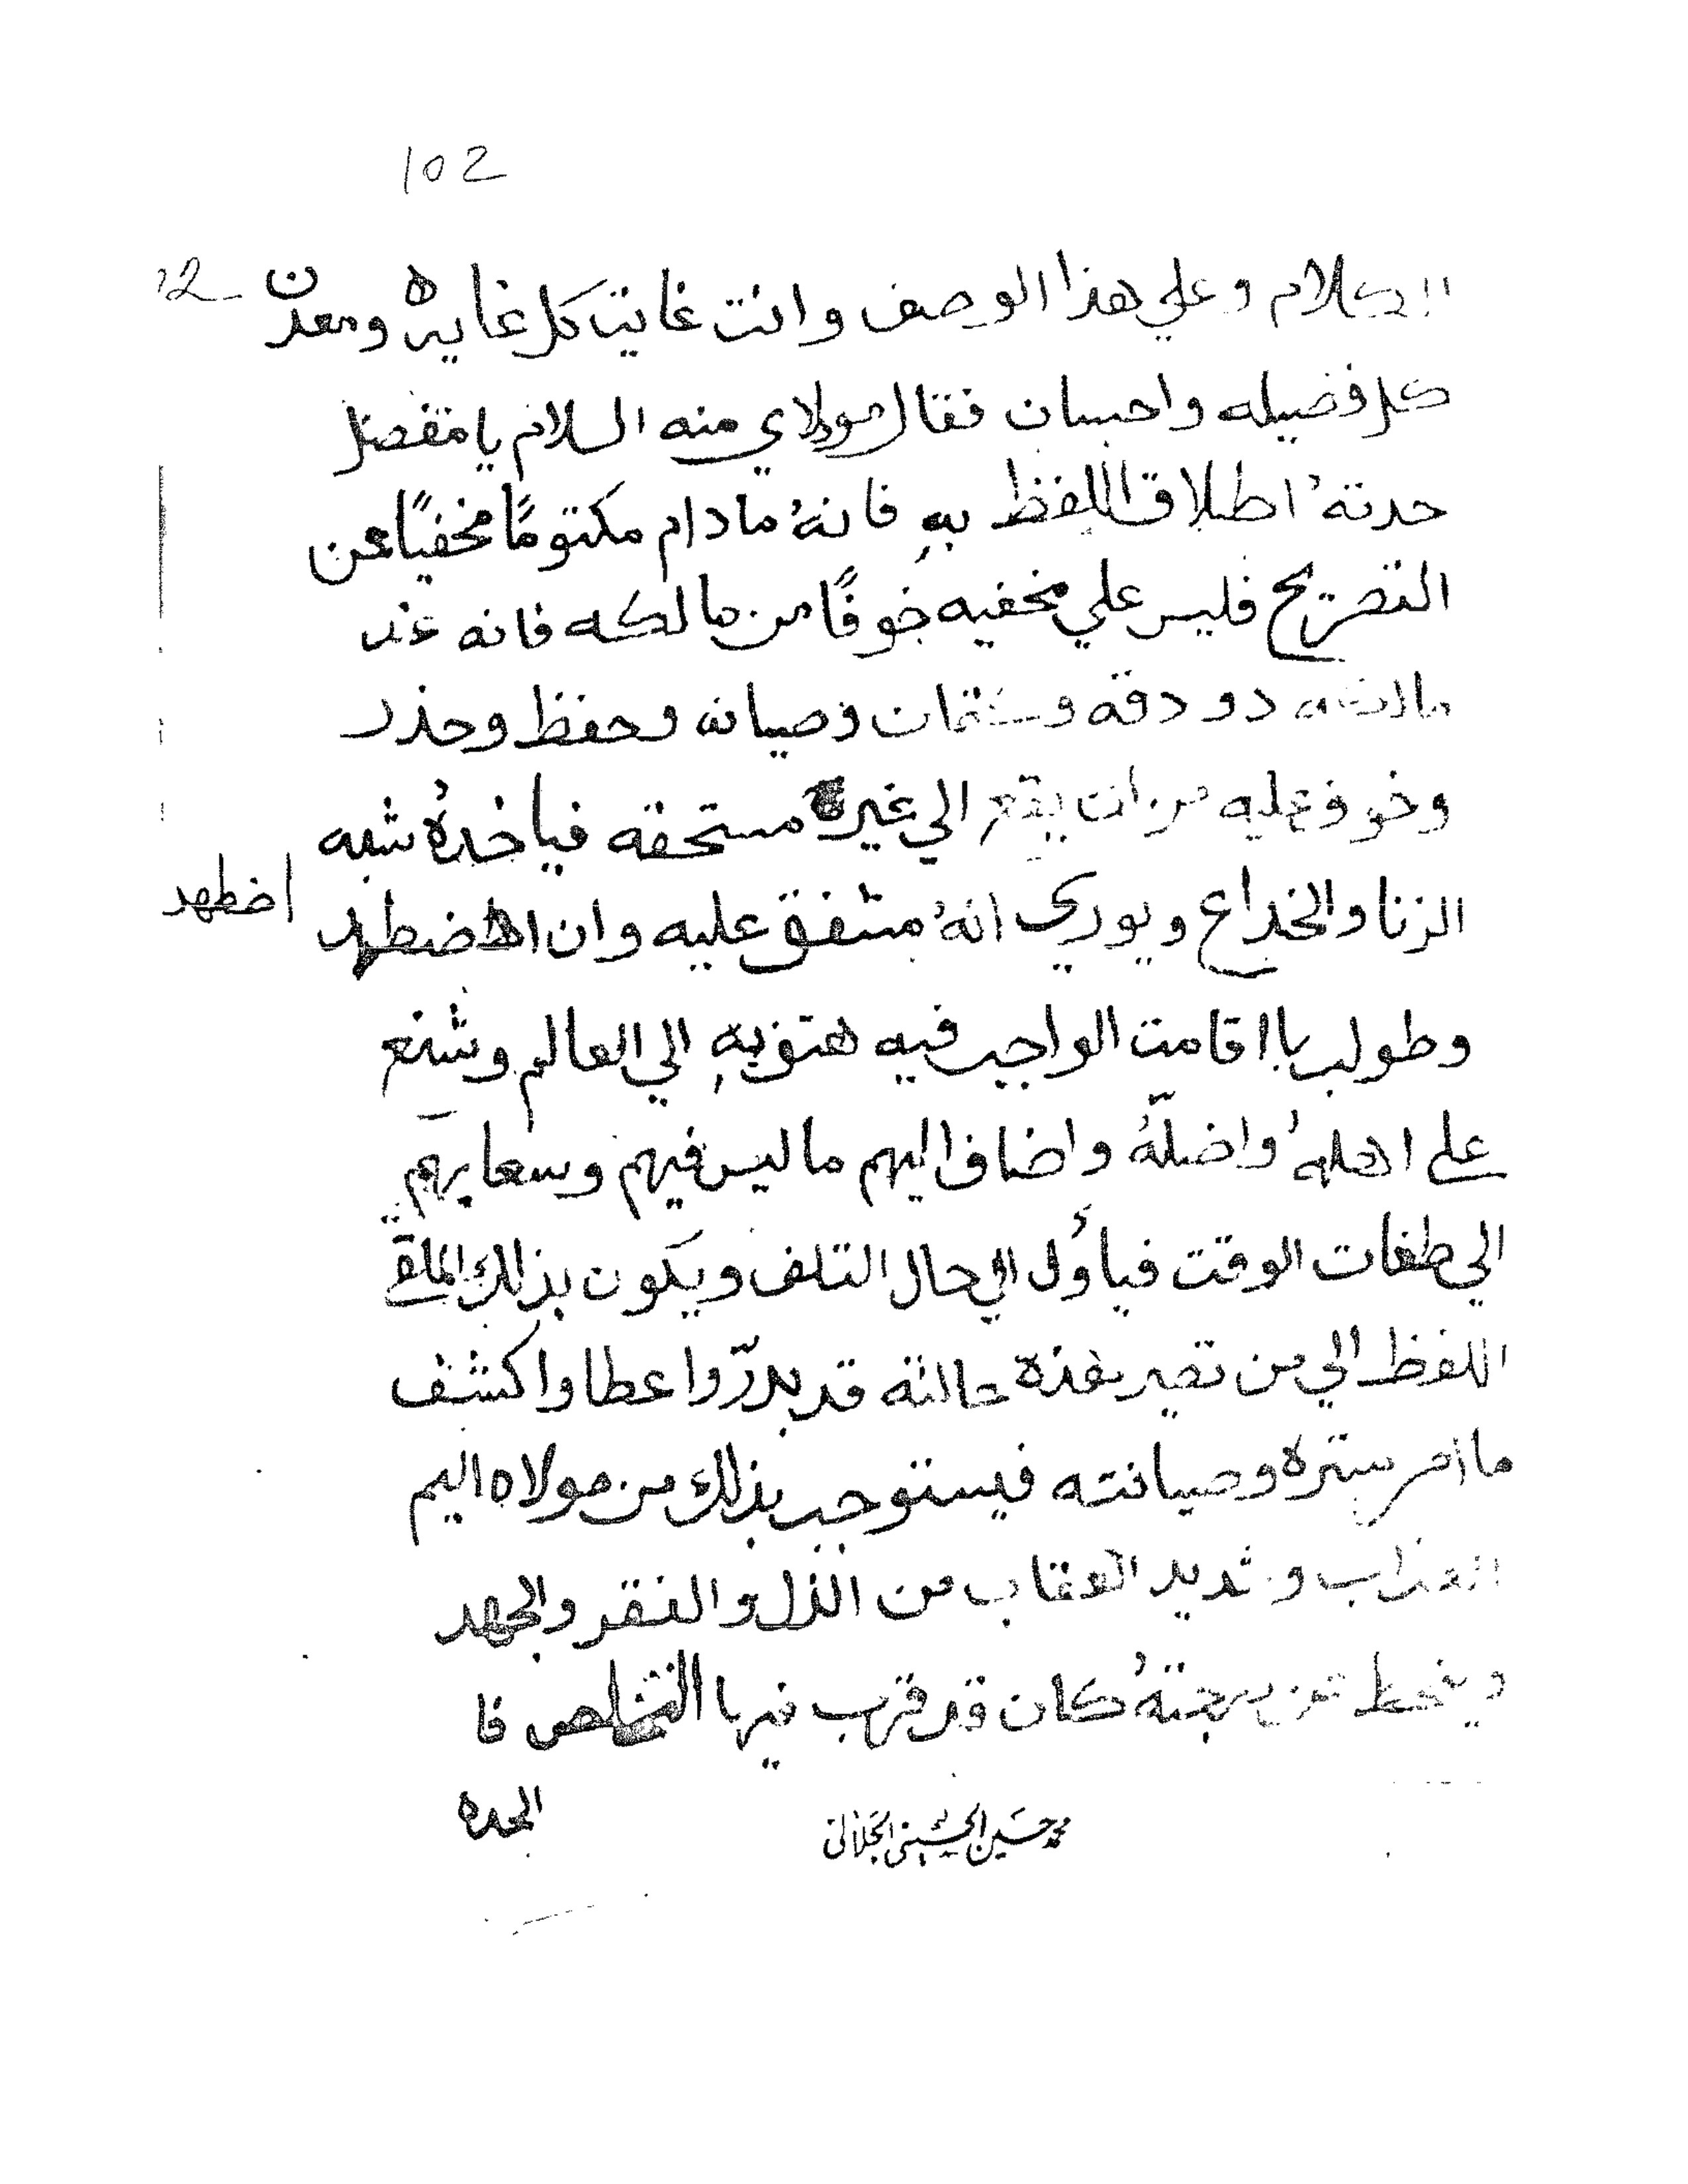 102
الكلام وعلي هذا الوصف وانت غايت كل غايه ومعدن
كل فضيله واحسان فقال مولاي منه السلام يا مفضل
حدته اطلاق اللفظ به فانهُ مادام مكتومًا مخفيًا عن
التصريح فليس علي مخفيه خوفًا من مالكه فانه عند
دو دقه وصيانه وحفظ وحذر
وخوف عليه من ان يقع الي غير مستحقه فياخدهُ شبه
الزنا والخداع ويوري انهُ مشفق عليه وان اضطهد
اضطهد
وطولب با اقامت الواجب فيه هتو به الي العالم وشنع
علي اهلهُ واضلّهُ واضاف اليهم ما ليس فيهم وسعا بهم
الي طغات الوقت فيأول الي حال التلف ويكون بذلك الملقي
اللفظ الي من تصير هذه حالته قد بدرّ واعطا واكشف
ما امر بستره وصيانته فيستوجب بذلك من مولاه اليم
العذاب وشديد العقاب من الذل والفقر والجهد
وينحط عن كان قد قرب فيها التخلص فا
محمد حسين الحسيني الجلالي